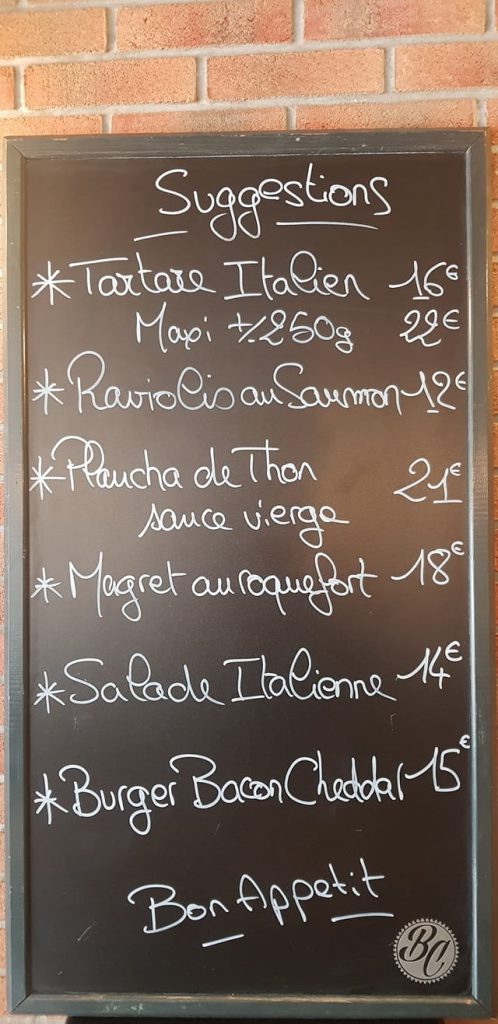 Suggestions
* Tartare Italien 16€
Maxi +/- 250g 22€
* Raviolis au Saumon 12€
* Plancha de Thon 21€
sauce vierge
* Magret au roquefort 18€
* Salade Italienne 14€
* Burger Bacon Cheddar 15€
Bon Appetit
BC